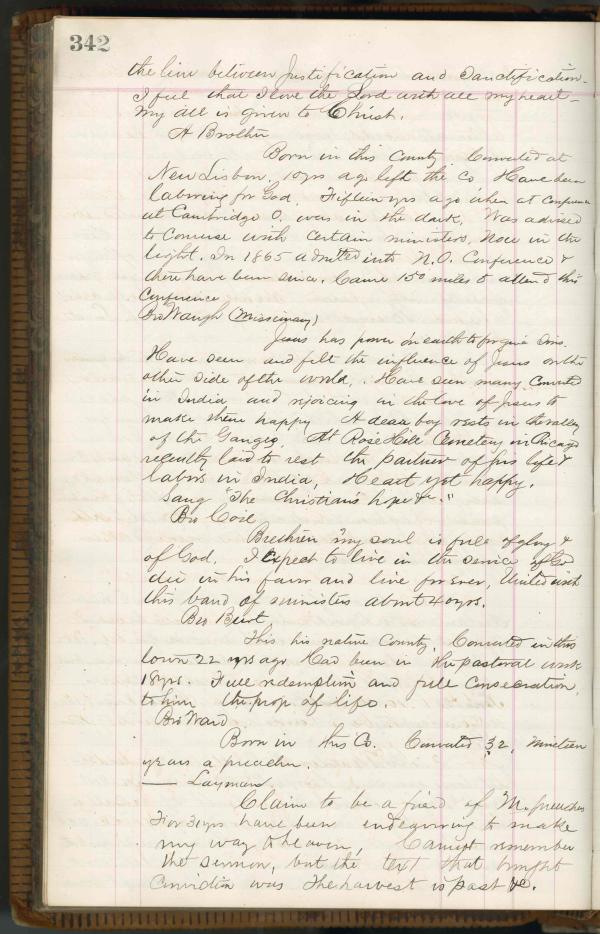 342
the line between Justification and Sanctification.
I feel that I love the Lord with all my heart
my all is given to Christ.
A Brother
Born in this County. Converted at
New Lisbon. 10 yrs ago left the Co Have been
laboring for God. Fifteen yrs ago when at Conference
at Cambridge O. was in the dark. Was advised
to Converse with certain ministers. Now in the
light. In 1865 admitted into N.O. Conference &
there have been since. Came 150 miles to attend this
Conference
Bro Waugh (Missionary)
Jesus has power on earth to forgive sins.
Have seen and felt the influence of Jesus on the
other side of the world. Have seen many Converted
in India and rejoicing in the love of Jesus to
make them happy A dear boy rests in the valley
of the Ganges. At Rose Hill Cemetery in Chicago
recently laid to rest the partner of his life &
labors in India, Heart yet happy.
Sang "The Christian's hope &c."
Bro
Brethren my soul is full of glory &
of God. I expect to live in the service of God
die in his favor and live forever. United with
this band of ministers about 40 yrs.
Bro
This his native County. Converted in this
town 22 yrs ago Had been in the pastoral work
18 yrs. Full redemption and full Consecration
to him the prop of life.
Bro Ward
Born in this Co. Converted 32, Nineteen
years a preacher.
— Layman
Claim to be a friend of M. preachers
For 31 yrs have been endeavoring to make
my way to heaven, Cannot remember
the sermon, but the text that brought
Conviction was The harvest is past &c.